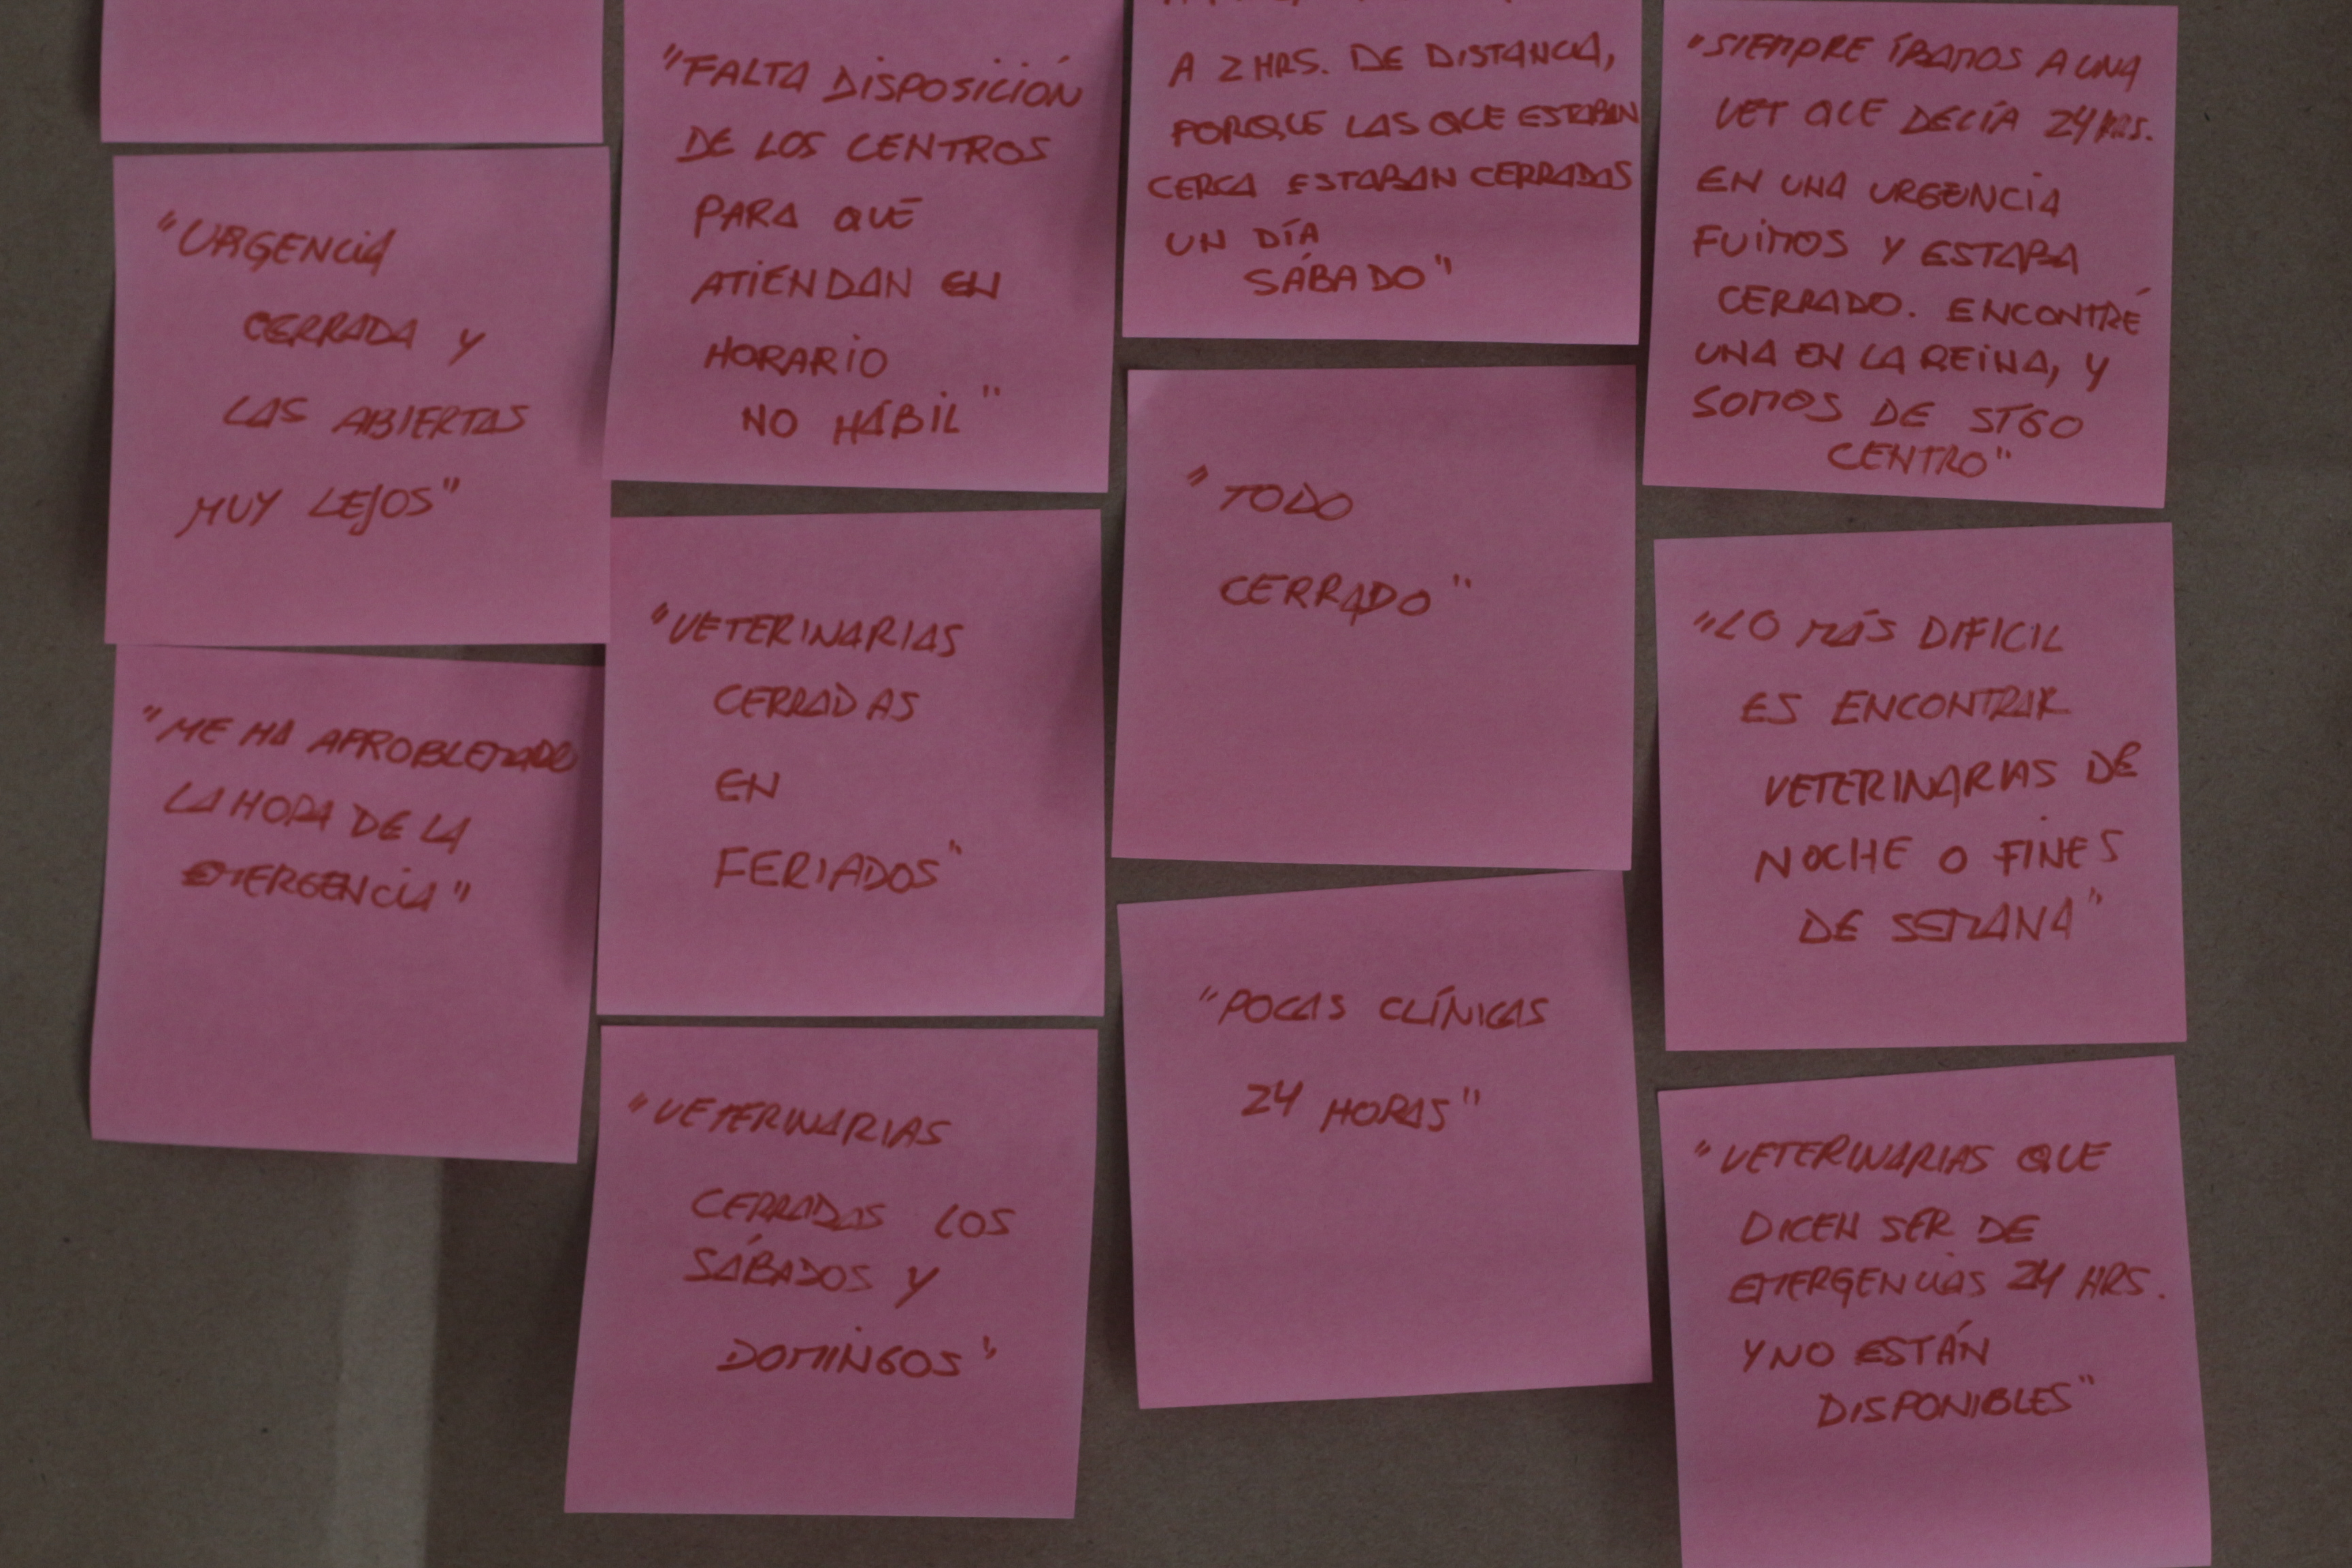 "URGENCIA
CERRADA Y
LAS ABIERTAS
MUY LEJOS"
"ME HA APROBLEMADO
LA HORA DE LA
EMERGENCIA"
"FALTA DISPOSICIÓN
DE LOS CENTROS
PARA QUE
ATIENDAN EN
HORARIO
NO HÁBIL"
"VETERINARIAS
CERRADAS
EN
FERIADOS"
"VETERINARIAS
CERRADAS LOS
SÁBADOS Y
DOMINGOS"
A 2 HRS. DE DISTANCIA,
PORQUE LAS QUE ESTABAN
CERCA ESTABAN CERRADAS
UN DÍA
SÁBADO"
"TODO
CERRADO"
"POCAS CLÍNICAS
24 HORAS"
"SIEMPRE ÍBAMOS A UNA
VET QUE DECÍA 24 HRS.
EN UNA URGENCIA
FUIMOS Y ESTABA
CERRADO. ENCONTRÉ
UNA EN LA REINA, Y
SOMOS DE STGO
CENTRO"
"LO MÁS DIFICIL
ES ENCONTRAR
VETERINARIAS DE
NOCHE O FINES
DE SEMANA"
"VETERINARIAS QUE
DICEN SER DE
EMERGENCIAS 24 HRS.
Y NO ESTÁN
DISPONIBLES"